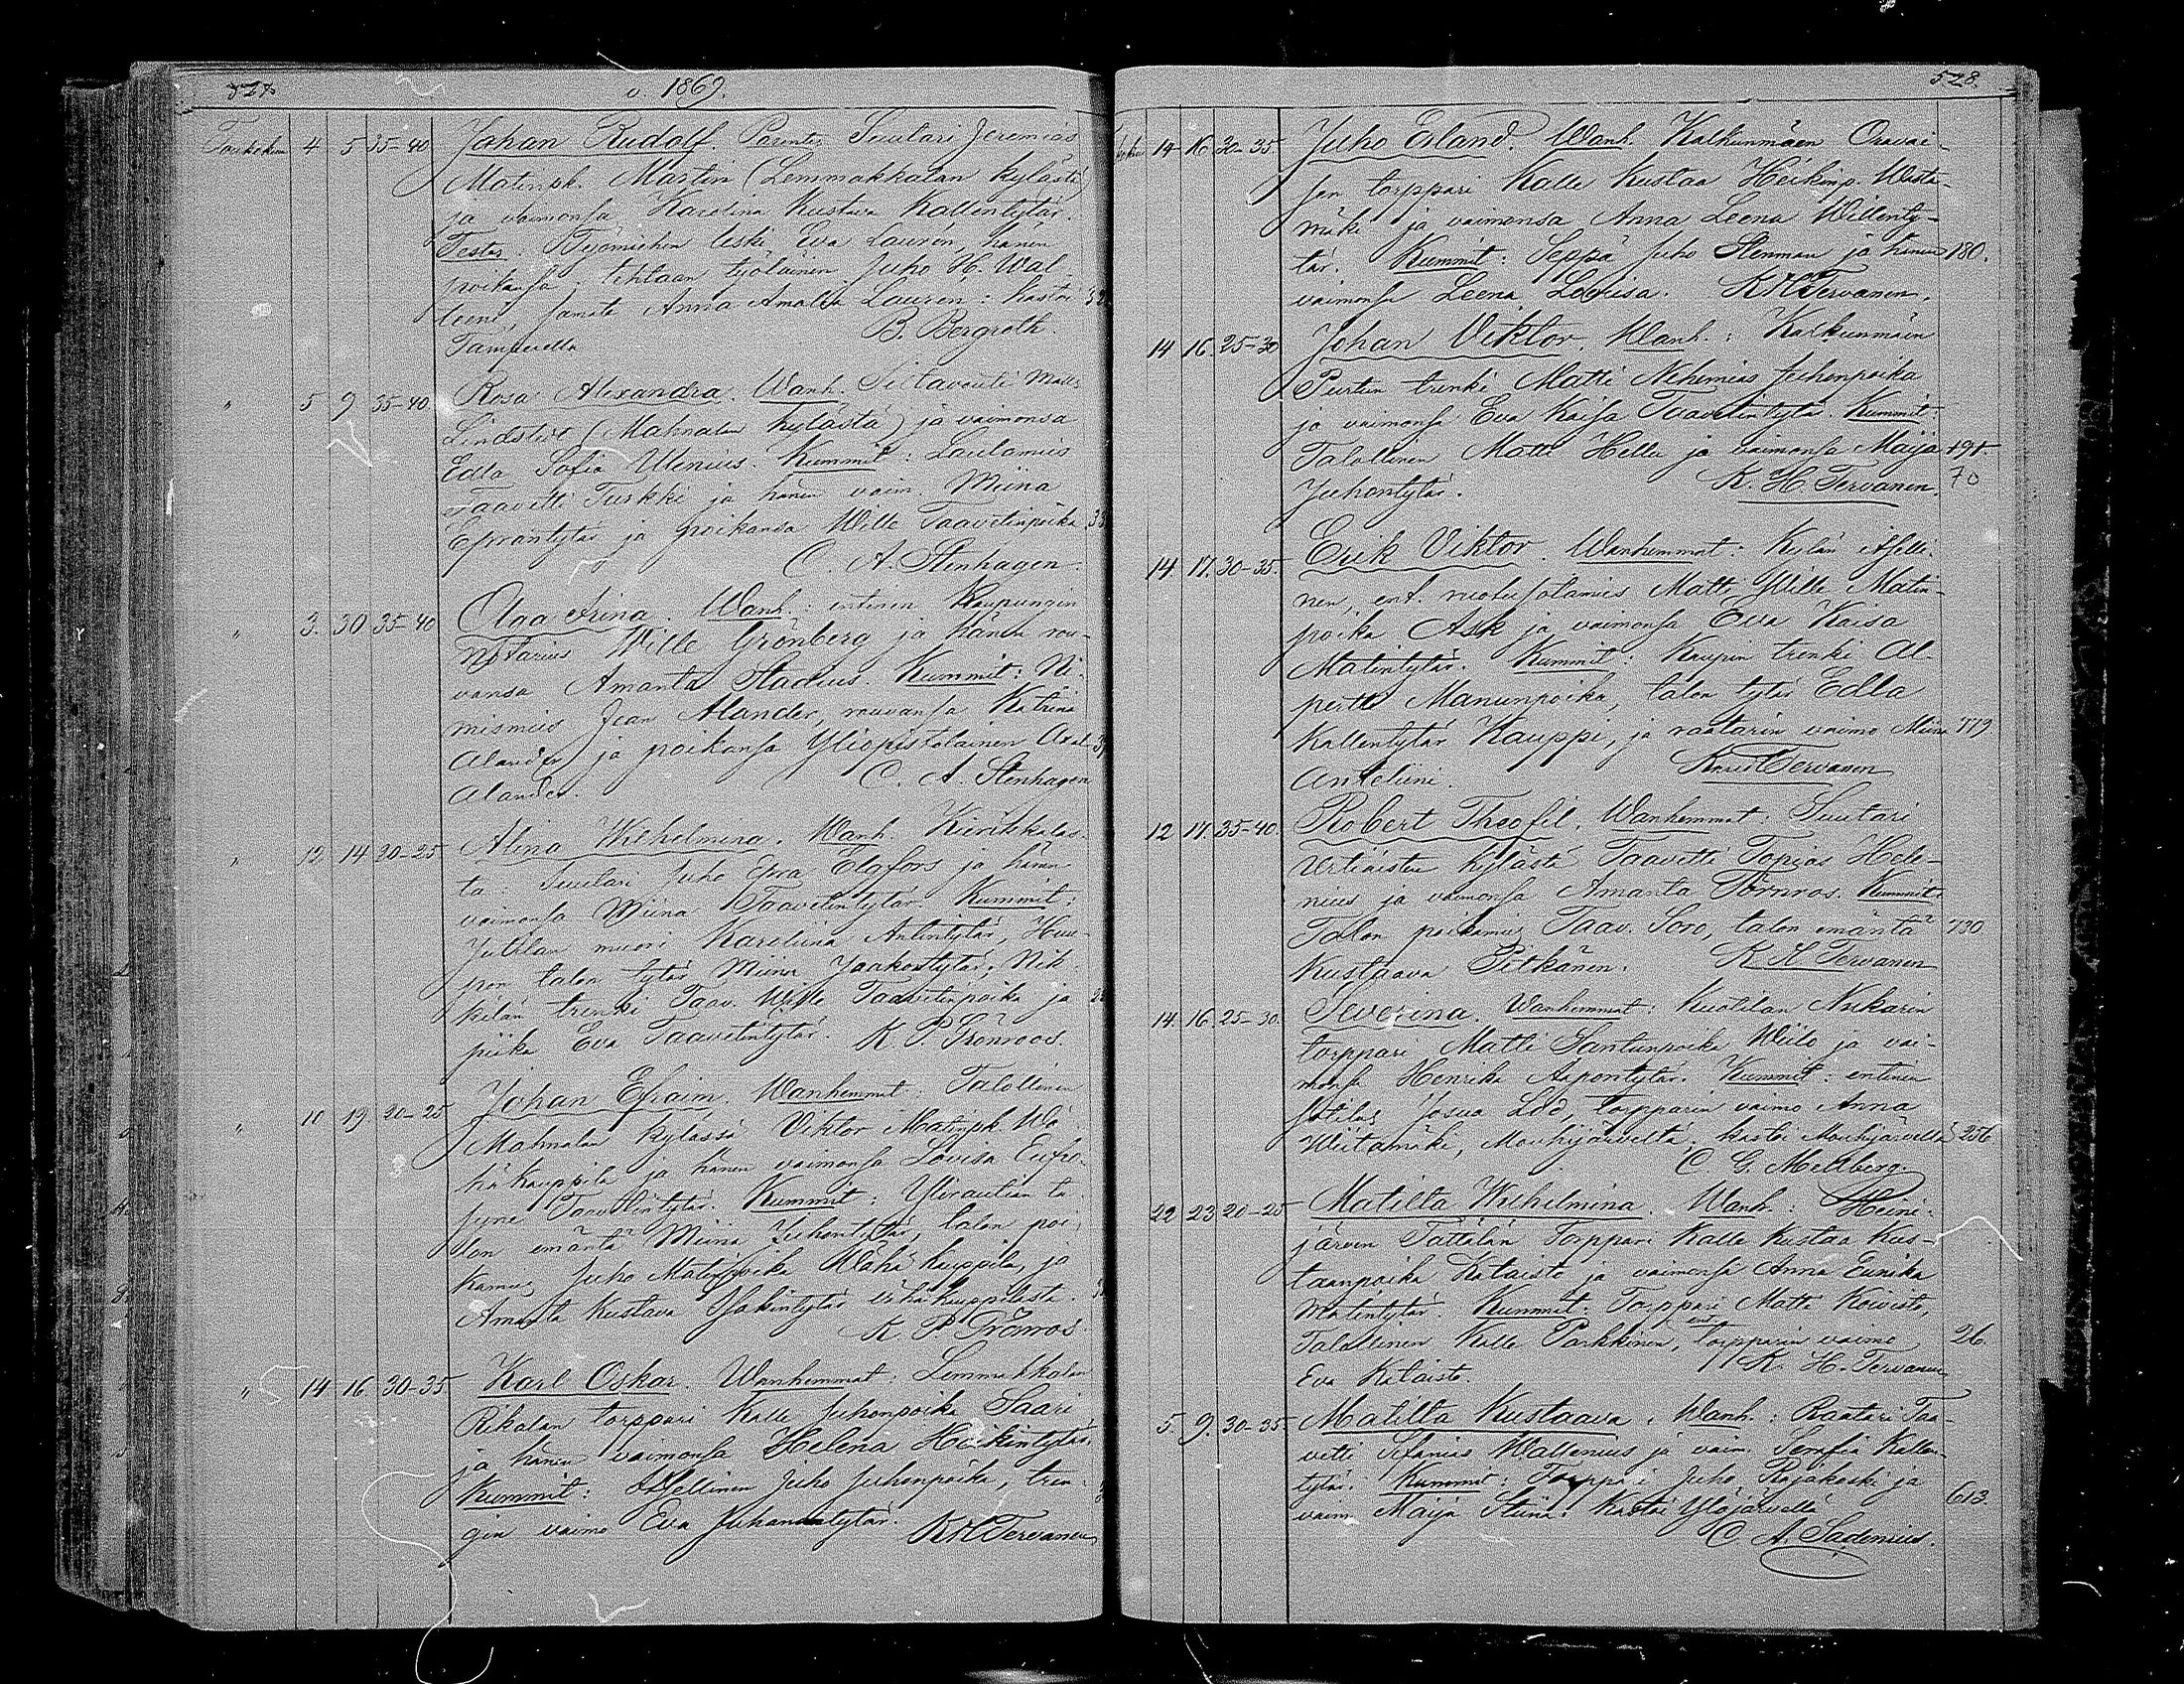 v. 1869.
Toukokuu 4 5 35-40 Johan Rudolf. Parents Suutari Jeremias
Matinpk. Martin (Lemmakkalan kylästä)
ja vaimonsa Karolina Kustava Kallentytär.
Testes. Työmiehen leski Eva Laurén, hänen
poikansa, tehtaan työläinen Juho H. Wal-
leeni, samate Anna Amalia Lauren: kastoi
Tamperella B. Bergroth.
" 5 9 35-40 Rosa Alexandra. Wanh. Siltavouti Matts
Lindstro (Mahnalan kylästä) ja vaimonsa
Edla Sofia Ulenius. Kummit: Lautamies
Taavetti Turkki ja hänen vaim. Miina
Eprantytär ja poikansa Wille Taavetinpoika
C. A. Stenhagen.
" 3. 30 35-40 Olga Irina. Wanh.: entinen Kaupungin
Notarius Wille Grönberg ja hänen rou-
vansa Amanta Stadius. Kummit: Ni-
mismies Jean Alander, rouvansa Katrina
Alander ja poikansa Yliopistolainen Axel
Alander. C. A. Stenhagen
" 12 14 20-25 Alina Wilhelmina. Wanh. Kierikkalas-
ta: Suutari Juho Epra Elgfors ja hänen
vaimonsa Miina Taavetintytär. Kummit:
Jutilan muori Karoliina Antintytär, Huu-
pon talon tytär Miina Jaakontytär, Nik-
kilän trenki Taav. Wille Taavetinpoika ja
piika Eva Taavetintytär. K. P. Grönroos.
" 10 19. 20-25 Johan Efraim. Wanhemmat: Talollinen
Mahnalan kylässä Viktor Matinpk. Wä-
häkauppila ja hänen vaimonsa Lovisa Eufro-
syne Taavetintytär. Kummit: Ylirautian ta-
lon emäntä Miina Juhontytär, talon poi-
kamies Juho Matinpoika Wähäkauppila, ja
Amanta Kustava Isakintytär
K. P. Grönroos.
" 14 16 30-35 Karl Oskar. Wanhemmat: Lemmakkalan
Rikalan torppari Kalle Juhonpoika Saari
ja hänen vaimonsa Helena Heikintytär.
Kummit: Itsellinen Juho Juhonpoika, tren-
gin vaimo Eva Juhanntytär. K H Tervanen
528.
14 16 30-35 Juho Erland. Wanh. Kalkunmäen Oravai-
sen torppari Kalle Kustaa Heikinp. Westa-
mäki ja vaimonsa Anna Leena Willenty-
tär. Kummit: Seppä Juho Stenman ja hänen 180.
vaimonsa Leena Lovisa. K H Tervanen.
14 16. 25-30 Johan Viktor. Wanh.: Kalkunmäen
Purtun trenki Matti Nehemias Juhonpoika
ja vaimonsa Eva Kaisa Taavetintytär. Kummit:
Talollinen Matti Hella ja vaimonsa Maija 191.
Juhontytär. K. H. Tervanen. 70
14. 17. 30-35. Erik Viktor. Wanhemmat: Kylän itselli-
nen, ent. ruotusotamies Matti Wille Matin-
poika Ask ja vaimonsa Eva Kaisa
Matintytär. Kummit: Kaupin trenki Al-
pertti Manunpoika, talon tytär Edla
Kallentytär Kauppi, ja raatarin vaimo Miina 779.
Anteliini. Tervanen
12 17. 35-40. Robert Theofil. Wanhemmat: Suutari
Urtiäisten kylästä Taavetti Topias Hele-
nius ja vaimonsa Amanta Törnroos. Kummit:
Talon poikamies Taav. Soro, talon emäntä 730
Kustaava Pitkänen. K H Tervanen
14. 16. 25-30. Severina. Wanhemmat: Kuotilan Niskarin
torppari Matti Santunpoika Wiilo ja vai-
monsa Henrika Aapontytär. Kummit: entinen
sotilas Josua Löd, torpparin vaimo Anna
Wiitamäki, Mouhijärveltä; kastoi Mouhijärvellä 256
C. G. Mellberg.
22 23 20-25 Matilta Wilhelmina. Wanh.: Heini-
järven Tättälän Torppari Kalle Kustaa Kus-
taanpoika Kataisto ja vaimonsa Anna Eunika
Matintytär. Kummit: Torppari Matti Koivisto,
Talollinen Kalle Parkkinen, ent. torpparin vaimo 26.
Eva Kataisto. K. H. Tervanen
5. 9. 30-35 Matilta Kustaava. Wanh.: Raatari Taa-
vetti Stefanus Wallenius ja vaim. Serafia Kallen-
tytär. Kummit: Torppari Juho Rajakoski ja
vaim. Maija Stiina: Kastoi Ylöjärvellä 613.
C. A. Sadenius.